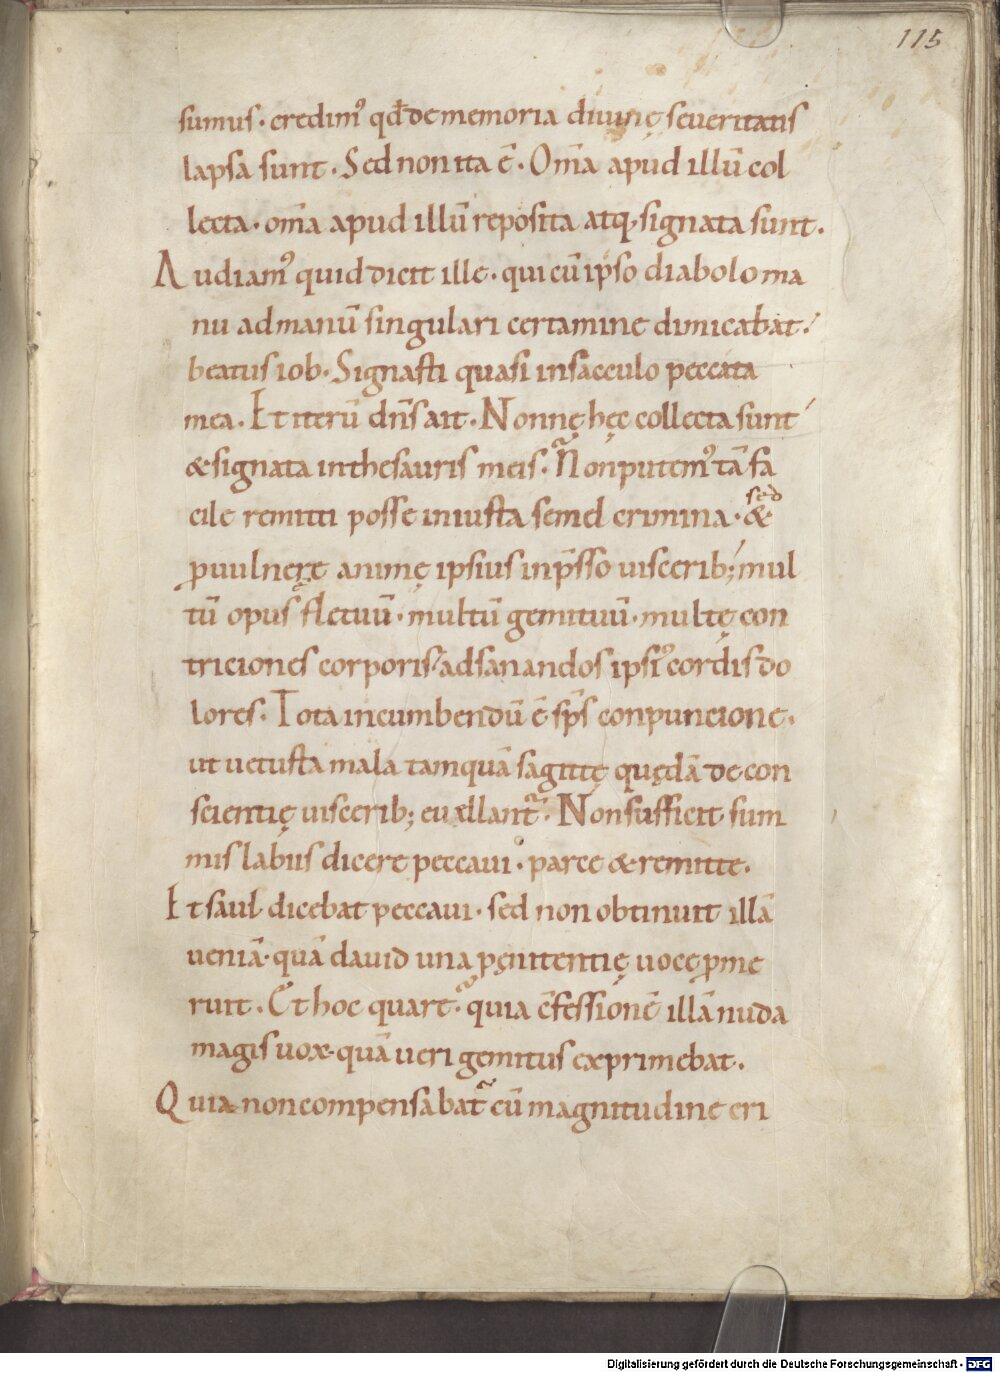 115
sumus · credim᾽ qđ de memoria diuinę seueritatis
lapsa sunt · Sed non ita ē · Om̄a apud illū col
lecta · om̄a apud illū reposita atq; signata sunt ·
Audiam᾽ quid dicit ille · qui cū ipso diabolo ma
nu ad manū singulari certamine dimicabat ·
beatus iob · Signasti quasi insacculo peccata
mea · Et iterū dn̄s ait · Nonnę hęc collecta sunt
& signata inthesauris meis · Non putem᾽ tā fa
cile remitti posse iniusta semel crimina · &
sed
ꝑ uulnere animę ipsius inp̄sso uiscerib; mul
tū opus fletuū · multū gemituū · multę con
triciones corporis ad sanandos ipsi᾽ cordis do
lores · Tota incumbendū ē sp̄s conpuncione ·
ut uetusta mala tamquā sagittę quędā de con
scientię uiscerib; euellant᷑ · Non sufficit sum
mis labiis dicere peccaui · parce & remitte ·
Et saul dicebat peccaui · sed non obtinuit illā
ueniā · quā dauid una pęnitentię uoce ꝓme
ruit · Et hoc quare · quia c̄fessionē illā nuda
magis uox · quā ueri gemitus exprimebat ·
Quia non compensabat᷑ cū magnitudine cri
Digitalisierung gefördert durch die Deutsche Forschungsgemeinschaft - DFG